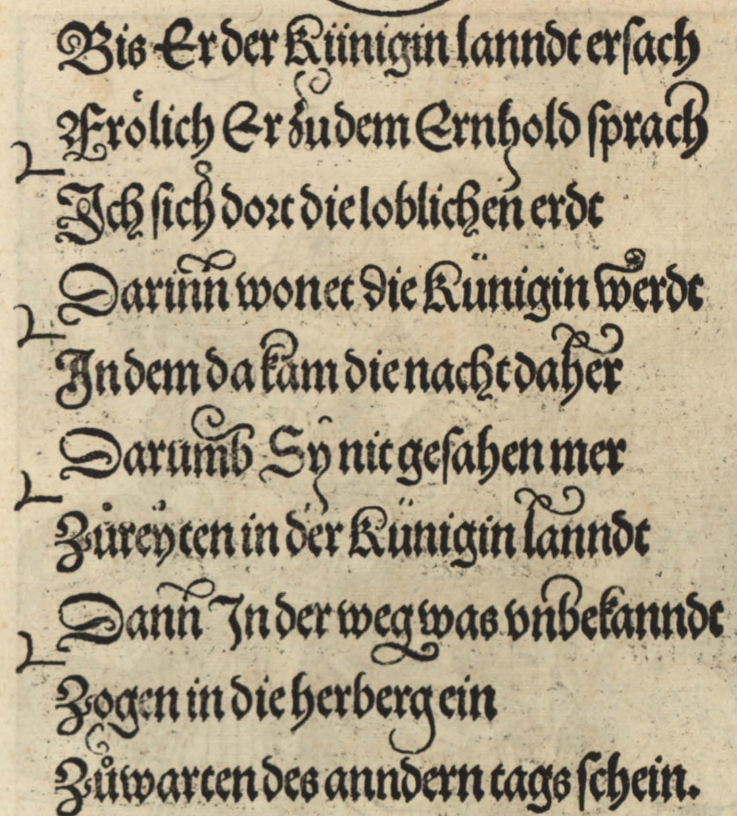 Bis Er der Künigin lanndt ersach
Frölich Er zu dem Ernhold sprach
Ich sich dort die loblichen erdt
Darinn wonet die Künigin werdt
In dem da kam die nacht daher
Darumb Sy nit gesahen mer
Zůreyten in der Künigin lanndt
Dann In der weg was vnbekanndt
Zogen in die herberg ein
Zůwarten des anndern tags schein.